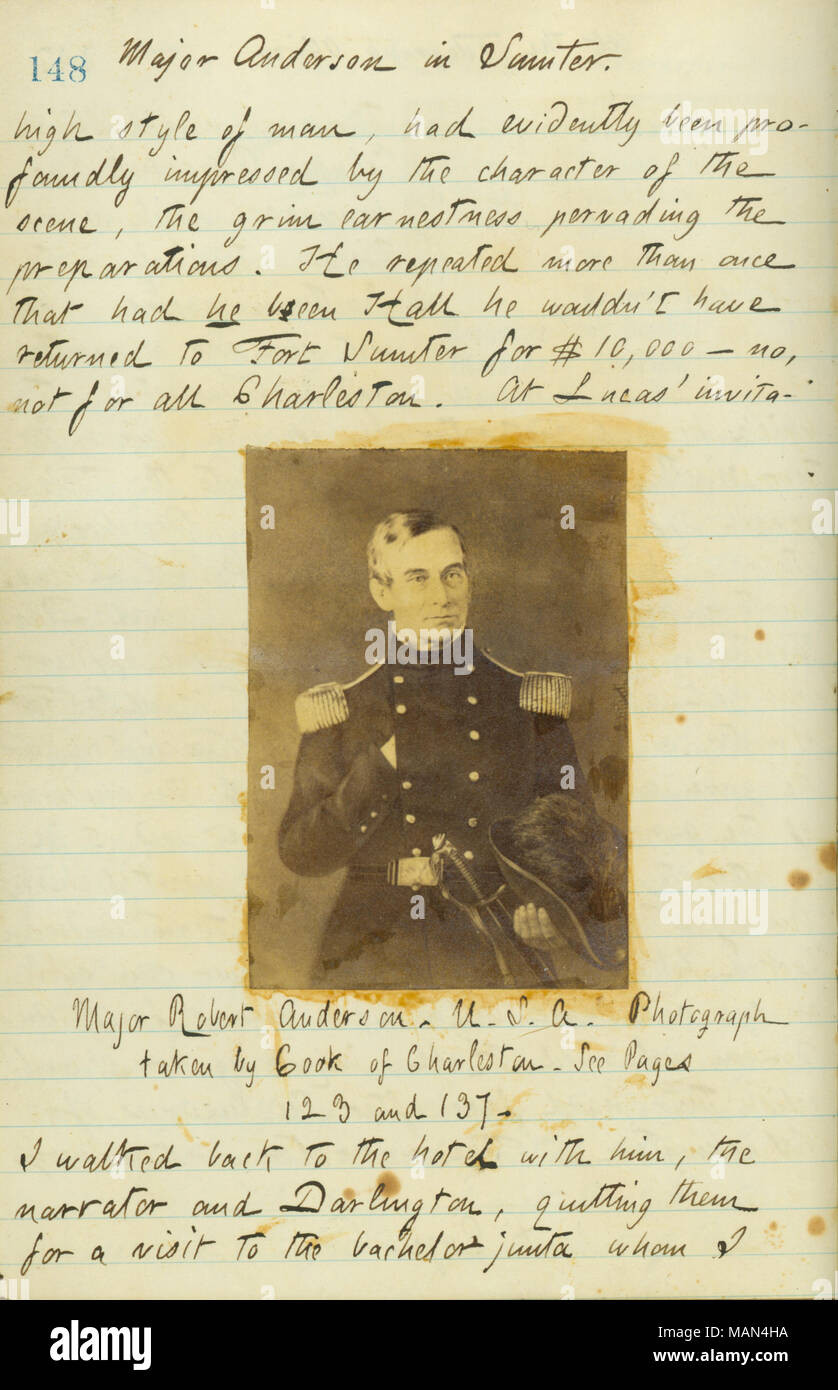 148 Major Anderson in Sumter.
high style of man, had evidently been pro-
foundly impressed by the character of the
scene, the grim earnestness pervading the
preparations. He repeated more than once
that had he been Hall he wouldn't have
returned to Fort Sumter for $10,000 — no,
not for all Charleston. At Lucas' invita-
Major Robert Anderson. U. S. A. Photograph
taken by Cook of Charleston. See Pages
123 and 137.
I walked back to the hotel with him, the
narrator and Darlington, quitting them
for a visit to the bachelor junta whom I
a
alamy
alamy
Image ID: MAN4HA
www.alamy.com